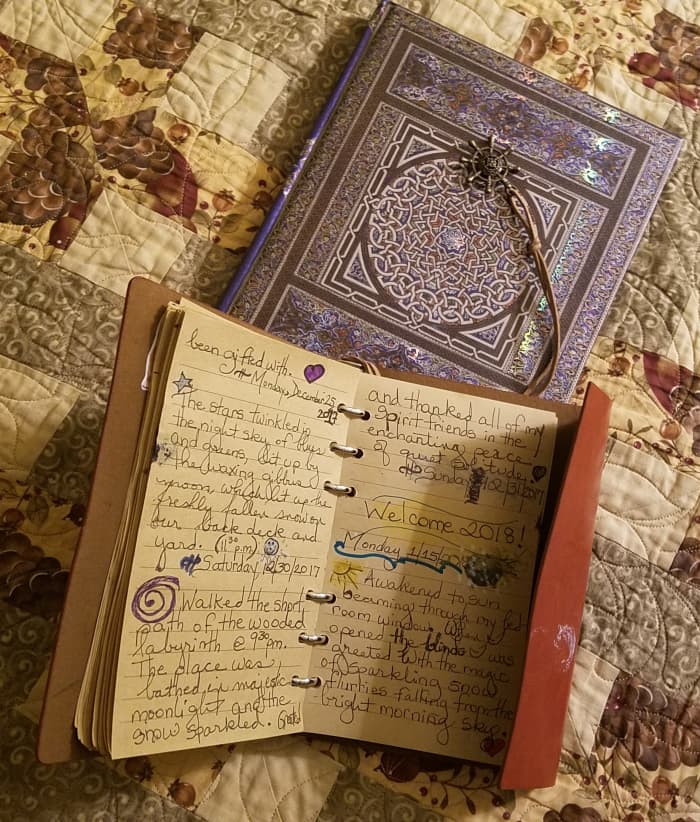 been gifted with.
Monday, December 25,
2017
The stars twinkled in
the night sky of blues
and greens, lit up by
the waxing gibbous
moon, which lit up the
freshly fallen snow on
our back deck and
yard. (11:30 pm)
Saturday, 12/30/2017
Walked the short
path of the wooded
labyrinth @ 9:30 pm.
The place was
bathed in majestic
moonlight and the
snow sparkled.
and thanked all of my
spirit friends in the
enchanting peace
of quiet solitude.
Sunday 12/31/2017
Welcome 2018!
Monday 1/15/
Awakened to sun
beaming through my bed
room window. When I
opened the blinds I was
greeted with the magic
of sparkling snow
flurries falling from the
bright morning sky.